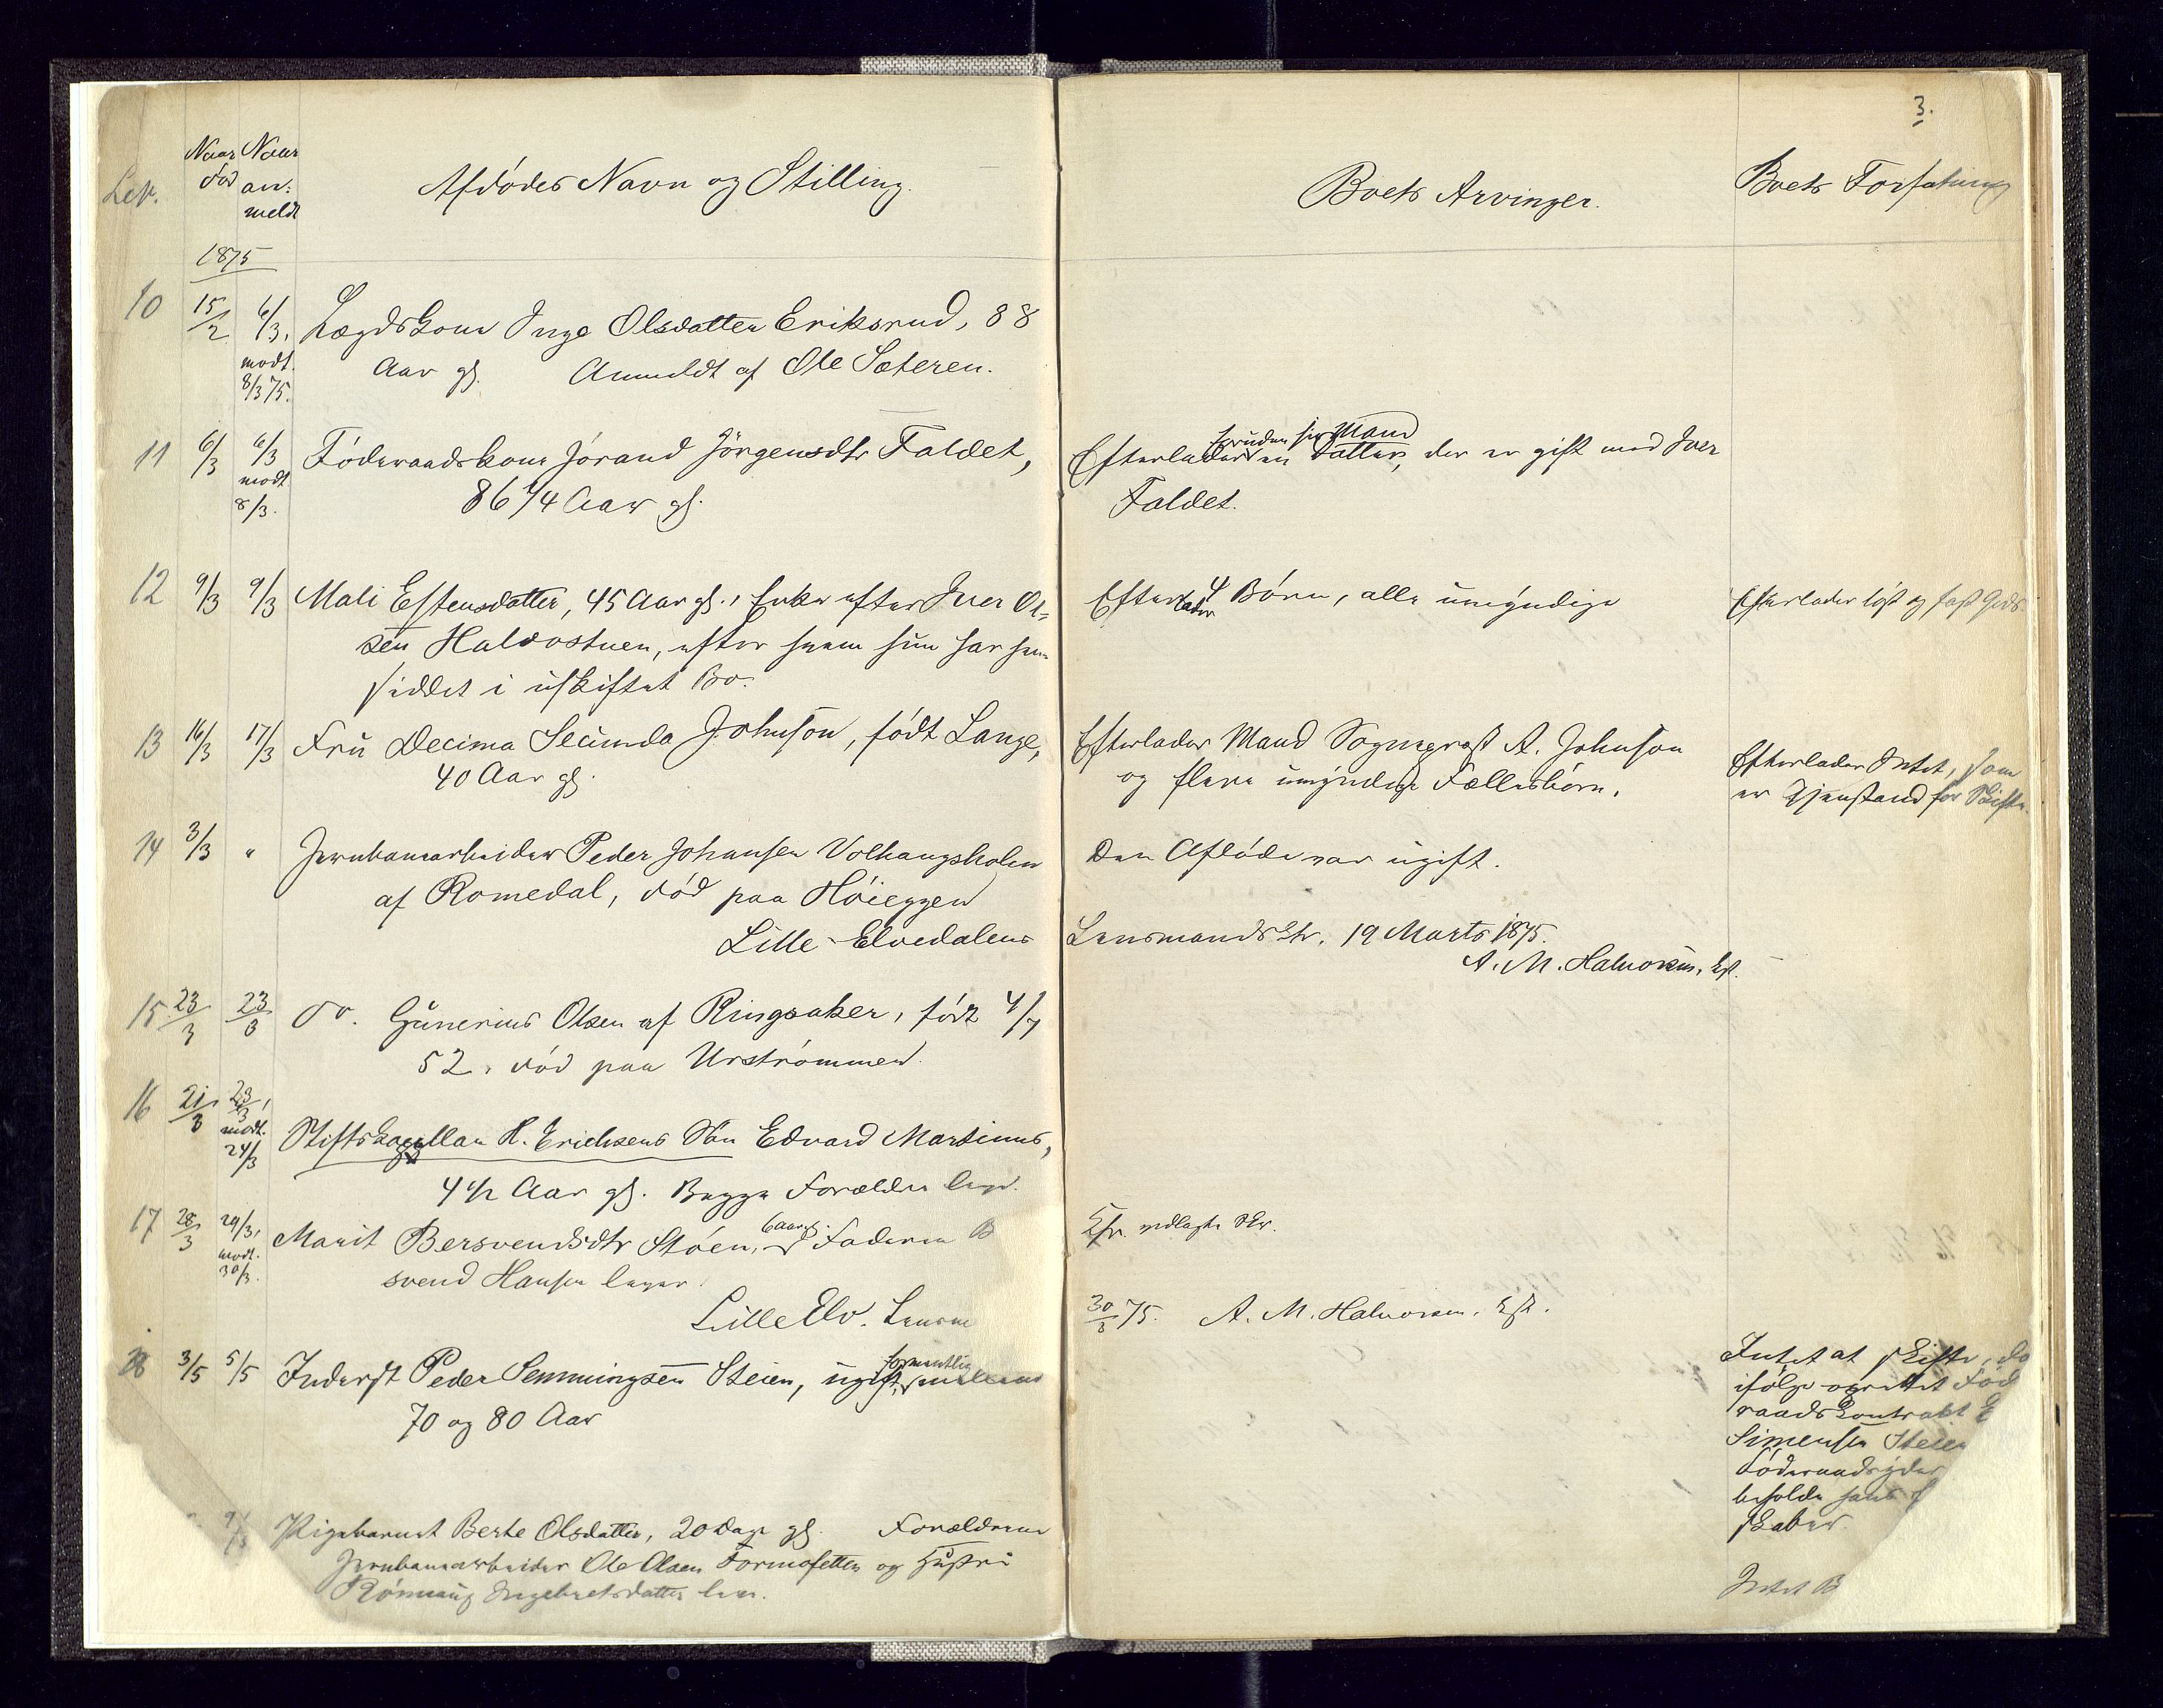 3.
Lep.
Naar død
Naar an:
meldt
Afdødes Navn og Stilling.
Boets Arvinger.
Boets Forfatning
1875
10 15/2 6/3. Lægdskone Inge Olsdatter Eriksrud, 88
modt. 8/3 75. Aar gl. Anmeldt af Ole Sæteren.
11 6/3 6/3 Føderaadskone Jørand Jørgensdtr Faldet,
modt 8/3. 86 1/4 Aar gl.
foruden sin Mand
Efterlader en Datter, der er gift med Iver
Faldet.
12 9/3 9/3 Mali Estensdatter, 45 Aar gl., Enke efter Iver Ol=
sen Haldostuen, efter hvem hun har hen
siddet i uskiftet Bo.
Efterlader 4 Børn, alle umyndige
Efterlader løst og fast Gods
13 16/3 17/3 Fru Decima Secunda Johnson, født Lange,
40 Aar gl.
Efterlader Mand Sognepræst A. Johnson
og flere umyndige Fællesbørn.
Efterlader Intet, som
er Gjenstand for Skifte.
14 3/3 " Jernbanearbeider Peder Johansen Volhaugsholen
af Romedal, død paa Høieggen
Den Afdøde var ugift.
Lille-Elvedalens Lensmandsktr. 19 Marts 1875.
A. M. Halvorsen, Kst.
15 23/3 23/3 do. Gunerius Olsen af Ringsaker, født 4/7
52, død paa Urstrømmen.
16 21/3 23/3,
modt. 24/3 Stiftskapellan H. Erichsens Søn Edvard Martinus,
4 1/2 Aar gl. Begge Forældre lever.
17 28/3 29/3, Marit Bersvendsdtr Støen, 6 Aar gl. Faderen B
modt. 30/3. svend Hansen lever.
Cfr. vedlagte Skr.
Lille Elv. Lensm
30/3 75. A. M. Halvorsen, Kst.
18 3/5 5/5 Inderst Peder Semmingsen Steien, ugift, formentlig mellem
70 og 80 Aar
Intet at skifte, da
ifølge oprettet Fød
raadskontrakt E
Simensen Steien
Føderaadsyder
beholde hans
skaber.
9/5 Pigebarnet Berte Olsdatter, 20 Dage gl. Forældrene
Jernbanearbeider Ole Olsen Tormosetten og Hustru
Rønnaug Ingebretsdatter lever.
Intet B